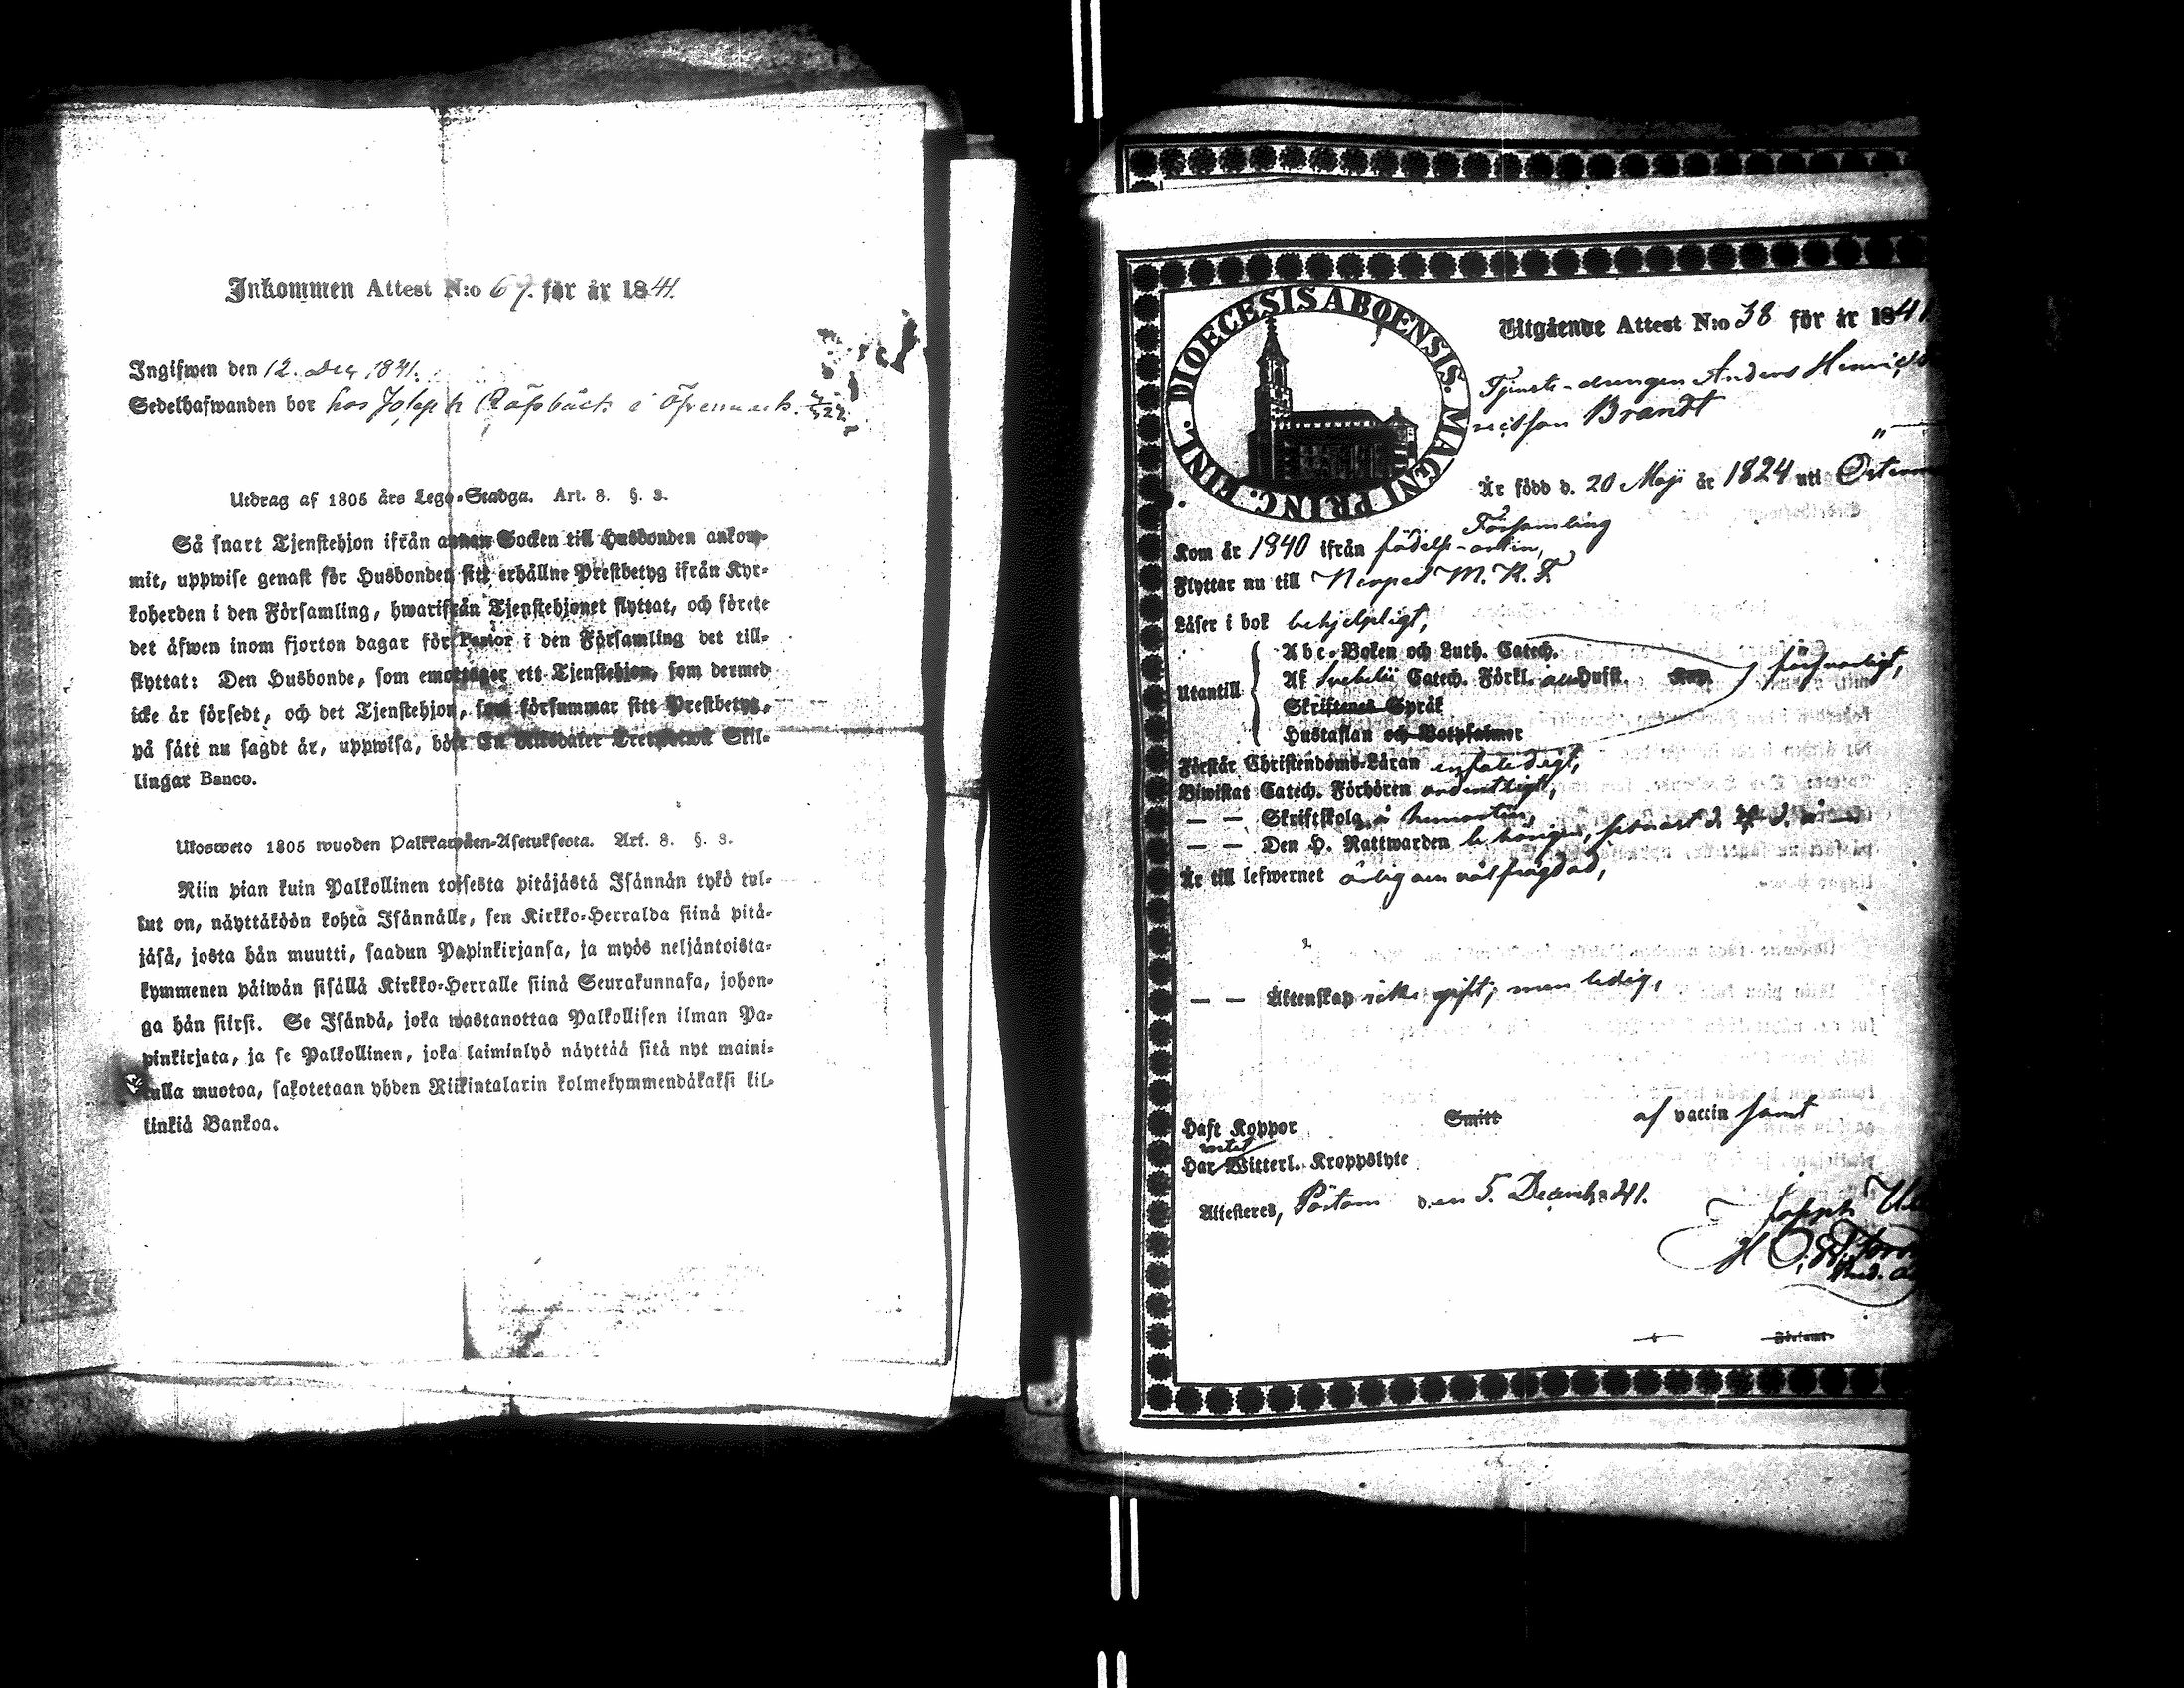 Inkommen Attest N:o 67. för år 1841.
Ingifwen den 12. Dec 1841.
Sedelhafwanden bor hos Joseph i Öfvermark.
Utdrag af 1805 års Lego-Stadga. Art. 8. §. 3.
Så snart Tjenstehjon ifrån annan Socken till Husbonden ankom-
mit, uppwise genast för Husbonden sitt erhållne Prestbetyg ifrån Kyr-
koherden i den Församling, hwarifrån Tjenstehjonet flyttat, och förete
det äfwen inom fjorton dagar för Pastor i den Församling det till-
flyttat: Den Husbonde, som emottager ett Tjenstehjon, som dermed
icke är försedt, och det Tjenstehjon, som försummar sitt Prestbetyg,
på sätt nu sagdt är, uppwisa, böte En Riksdaler Trettiotwå Skil-
lingar Banco.
Ulosweto 1805 wuoden Palkkawäen-Asetuksesta. Art. 8. §. 3.
Niin pian kuin Palkollinen toisesta pitäjästä Isännän tykö tul-
lut on, näyttäköön kohta Isännälle, sen Kirkko-Herralda siinä pitä-
jäsä, josta hän muutti, saadun Papinkirjansa, ja myös neljäntoista-
kymmenen päiwän sisällä Kirkko-Herralle siinä Seurakunnasa, johon-
ga hän siirsi. Se Isändä, joka wastanottaa Palkollisen ilman Pa-
pinkirjata, ja se Palkollinen, joka laiminlyö näyttää sitä nyt maini-
tulla muotoa, sakotetaan yhden Riikintalarin kolmekymmendäkaksi kil-
linkiä Bankoa.
DIOECESIS ABOENSIS. MAGNI PRINC. FINL.
Utgående Attest N:o 38 för år 1841
Tjenste-drengen Anders Henrics
Brandt
Är född d. 20 Maji år 1824 uti
Församling
Kom år 1840 ifrån födelse-orten,
Flyttar nu till Nerpes M. K. F.
Läser i bok behjelpligt,
Utantill
Abc-Boken och Luth. Catech.
Af Svebelii Catech. Förkl. Husft. försvarligt,
Skriftenes Språk
Hustaflan och Botpsalmer
Förstår Christendoms-Läran enfaldigt,
Biwistat Catech. Förhören ordentligt,
— — Skriftskola i hemorten,
— — Den H. Nattwarden behörigen, senast d.
Är till lefwernet ärlig och välfrägdad,
— — Äktenskap icke gift; men ledig,
Haft Koppor Smitt af vaccin samt
intet
Har Witterl. Kroppslyte
Attesteres, Pörtom den 5. Decemb. 1841.
Joseph